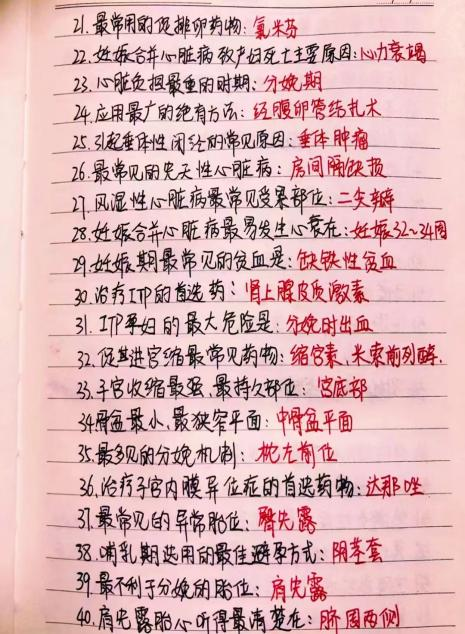 21.最常用的促排卵药物:氯米芬
22.妊娠合并心脏病致产妇死亡主要原因:心力衰竭
23.心脏负担最重的时期:分娩期
24.应用最广的绝育方法:经腹卵管结扎术
25.引起垂体性闭经的常见原因:垂体肿瘤
26.最常见的先天性心脏病:房间隔缺损
27.风湿性心脏病最常见受累部位:二尖瓣
28.妊娠合并心脏病最易发生心衰在:妊娠32~34周
29.妊娠期最常见的贫血是:缺铁性贫血
30.治疗ITP的首选药:肾上腺皮质激素
31.ITP孕妇的最大危险是:分娩时出血
32.促其进宫缩最常见药物:缩宫素、米索前列醇.
33.子宫收缩最强、最持久部位:宫底部
34.骨盆最小、最狭窄平面:中骨盆平面
35.最多见的分娩机制:枕左前位
36.治疗子宫内膜异位症的首选药物:达那唑
37.最常见的异常胎位:臀先露
38.哺乳期选用的最佳避孕方式:阴茎套
39.最不利于分娩的胎位:肩先露
40.肩先露胎心听得最清楚在:脐周两侧